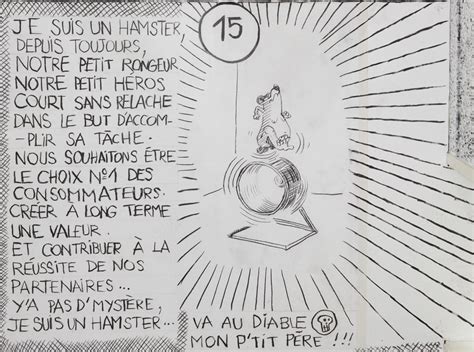 JE SUIS UN HAMSTER,
DEPUIS TOUJOURS,
NOTRE PETIT RONGEUR
NOTRE PETIT HÉROS
COURT SANS RELACHE
DANS LE BUT D'ACCOM-
-PLIR SA TÂCHE.
NOUS SOUHAITONS ÊTRE
LE CHOIX N°1 DES
CONSOMMATEURS.
CRÉER À LONG TERME
UNE VALEUR.
ET CONTRIBUER À LA
RÉUSSITE DE NOS
PARTENAIRES...
Y'A PAS D'MYSTÈRE,
JE SUIS UN HAMSTER...
15
VA AU DIABLE
MON P'TIT PÉRE !!!